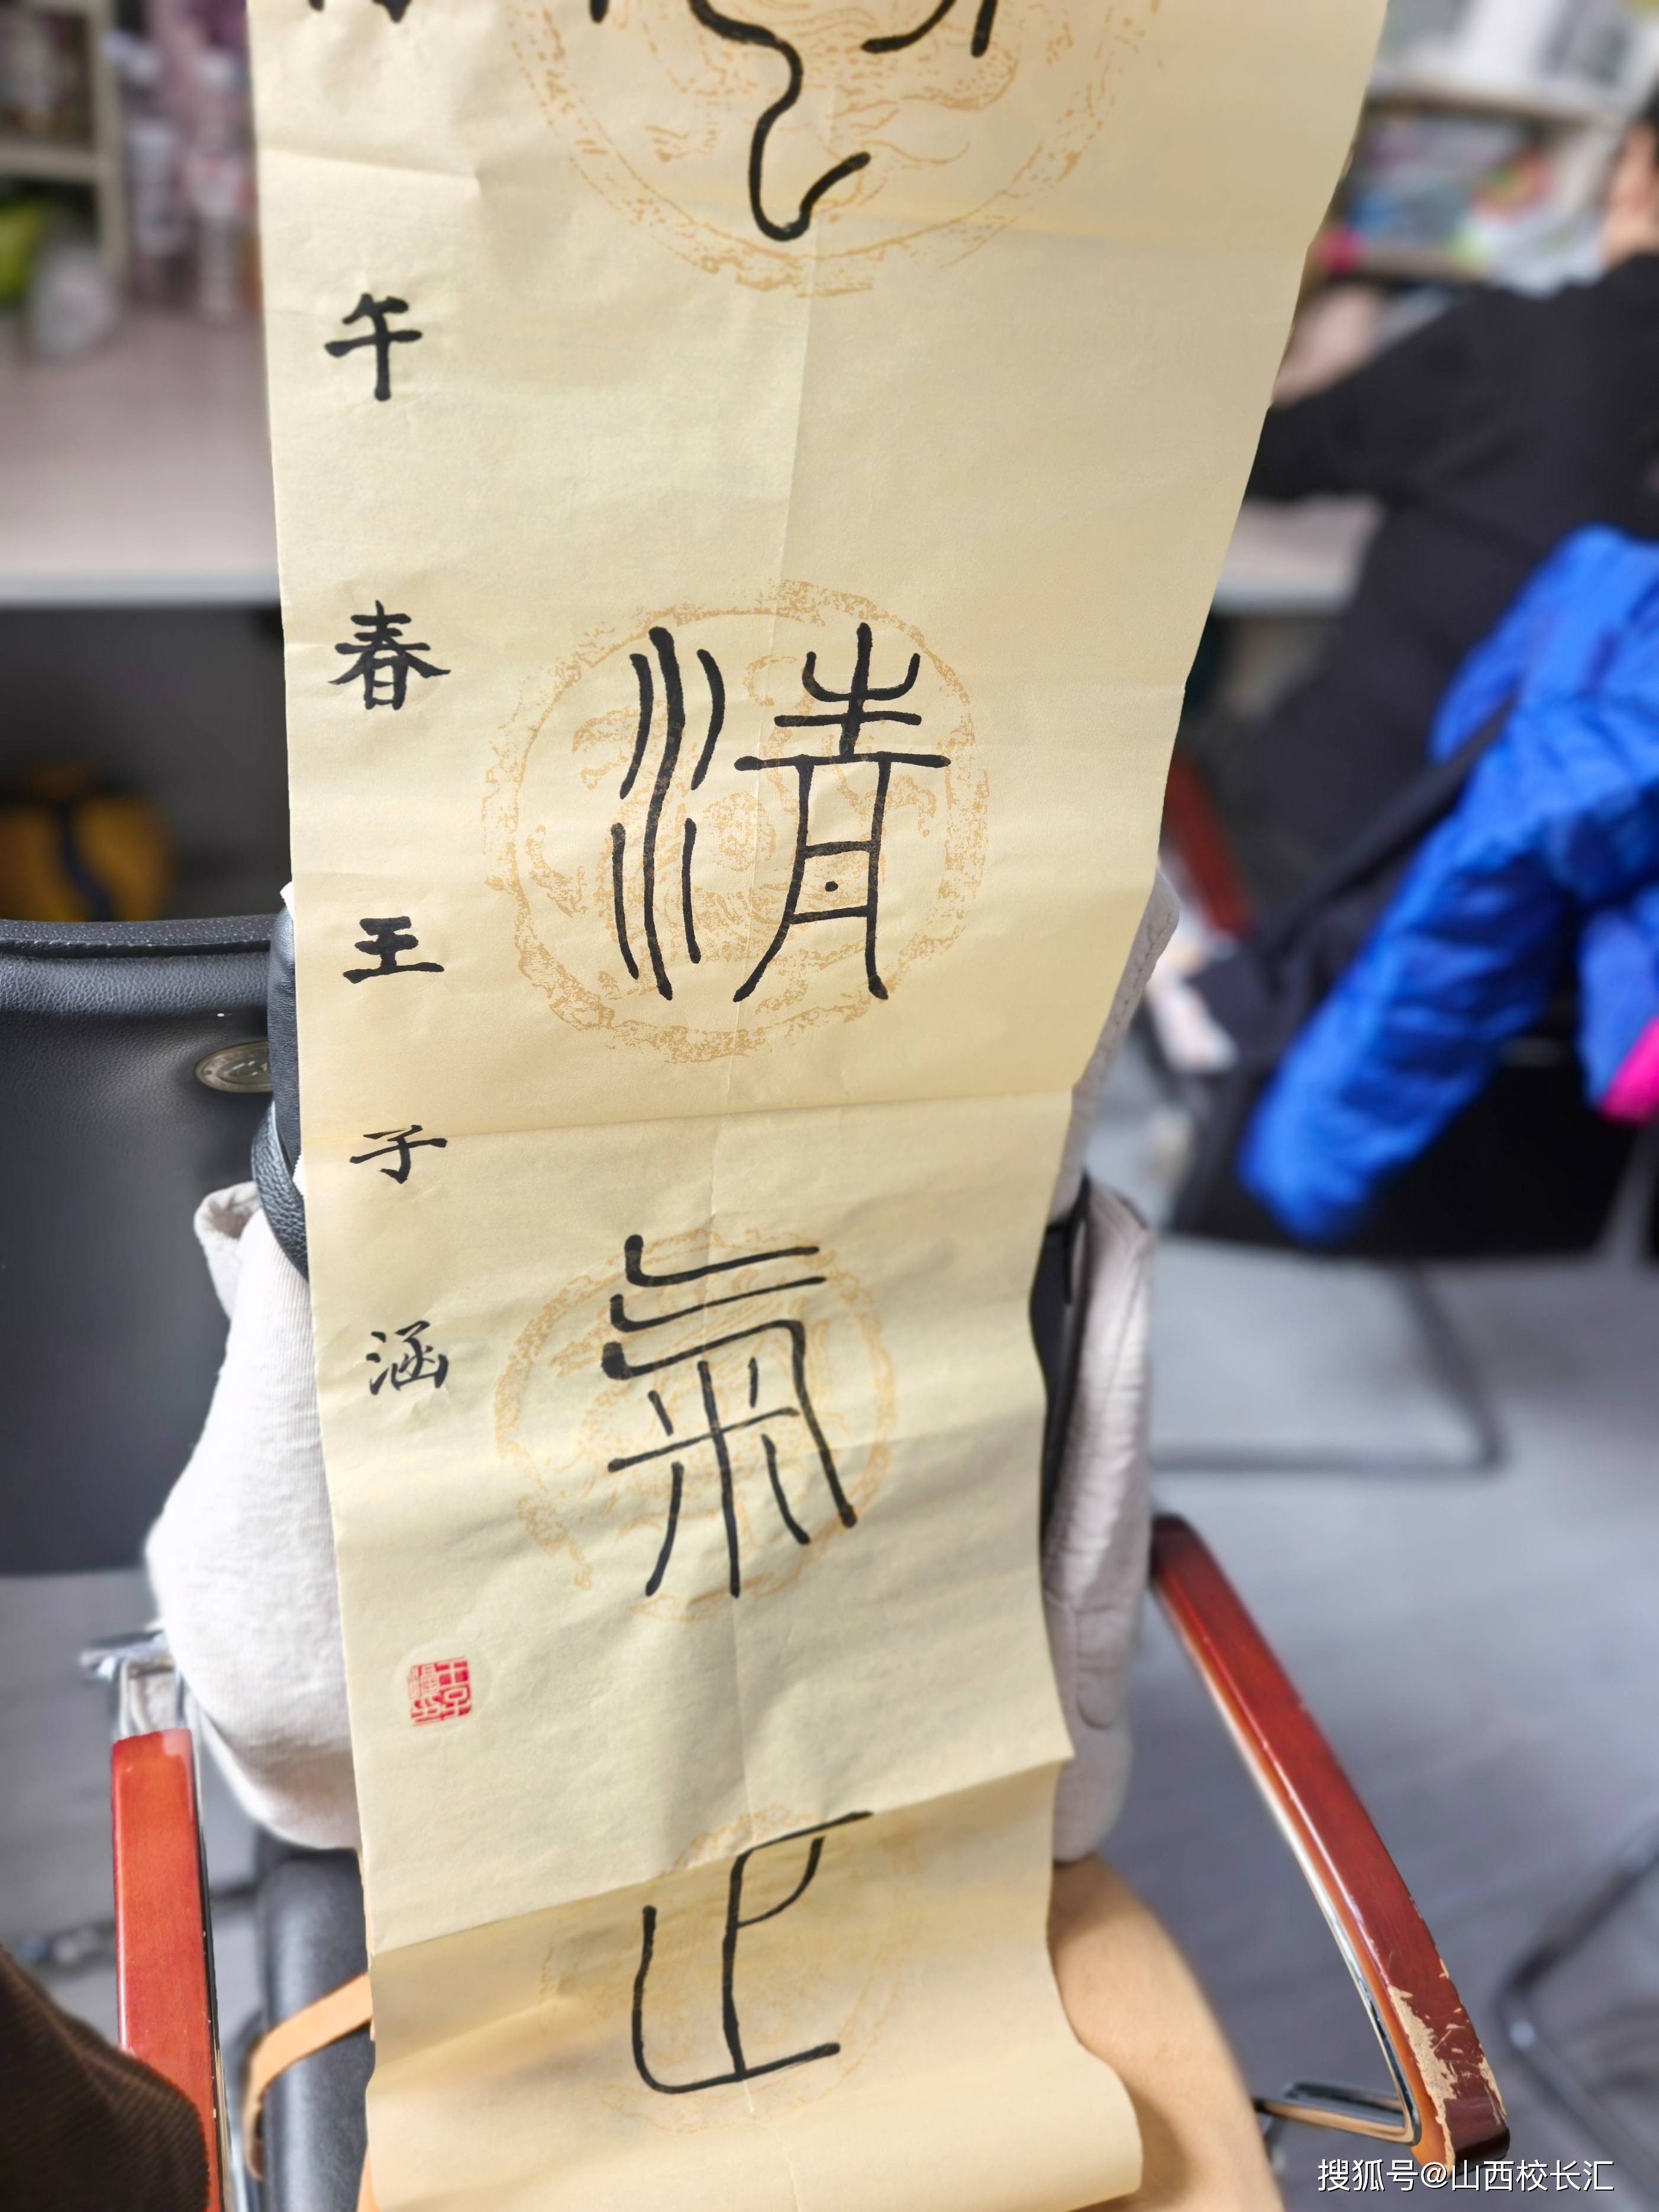 清氣正
午春王子涵
王子涵印
搜狐号@山西校长汇